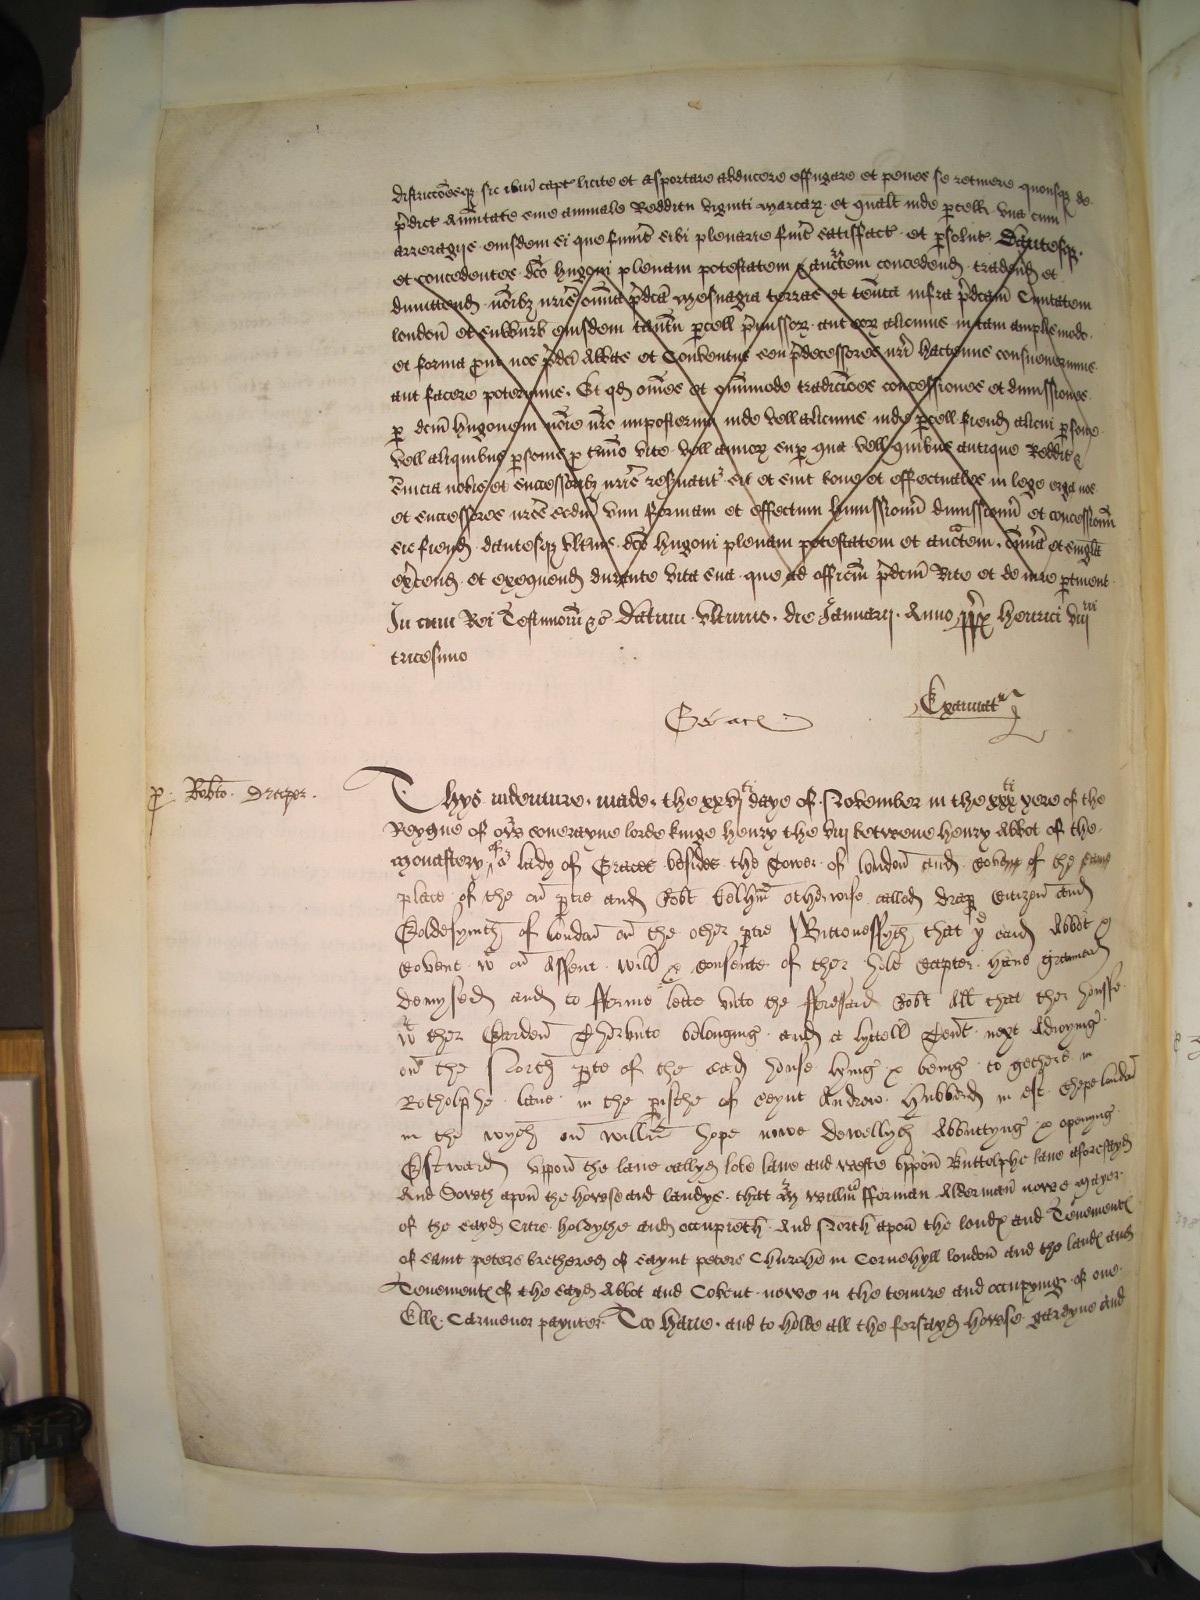 districcōesq̨ sic ibm̄ capt̄ licite et asportare abducere effugare et penes se retinere quousq̨ de
p̄dict Annuitate sive annuale Redditu viginti marcaꝝ et qualt inde p̄cell una cum
arreragijs eiusdem si que fuint̄ sibi plenarie fuit̄ satisfact et p̄solut Dantesq̨
et concedentes dc̄o hugoni plenam potestatem & auctītem concedend tradend et
dimittend nōibꝫ nr̄is om̄ia p̄dcā mesuagia terras et ten̄ta infra p̄dcam̄ Civitatem
london̄ et suburb eiusdem p̄cell p̄missoꝝ aut eoꝝ alicuius in tam amplis modo
et forma prout nos p̄dci Abbas et Conventus seu p̄decessores nr̄i hactenus consuevimus
aut facere poterimus Et qd om̄es et om̄imode tradicōes concessiones et dimissiones
p dcm̄ hugonem nōie nr̄o imposterum inde vell alicuius inde p̄cell fiend alicui p̄sone
vell aliquibus p̄sonis p t̄mio vite vell annoꝝ sup qua vell quibus antique Reddit̄
s̄vicia nobis et successoribꝫ nr̄is res̄vatit̄ sit et sint bone et effectuales in lege erga nos
et successores nr̄os scdm̄ vim formam et effectum dimissionū et concessionū
sic fiend dantesq̨ ulterius dc̄o hugoni plenam potestatem et auctītem om̄ia et singla
ex̄cend et exequend durante vita sua que ad officiū p̄dcm̄ rite et de iure ptinent
In cuius Rei Testimoniū &c̄ Datum ultimo die Januarij Anno RRx henrici viij
tricesimo
Examinat
p Robto Draper
Thys indenture made the xxvj daye of November in the xxx yere of the
Reygne of oʳ soverayne lorde kinge henry the viij betweene henry Abbot of the
monastery of oʳ lady of Graces besides the Tower of london and covent of the same
place of the on ptie and Robt otherwise called drap Citizen and
Goldesmyth of london on the other ptie Wittnessyth that yᵉ said Abbot &
covent wᵗ on Assent will & consente of ther hole Capter have graunted
demysed and to fferme lette unto the fforesaid Robt All that ther housse
wᵗ ther Garden Therunto belonging and a lyttell Tent next Adioynīg
on the North pte of the said house lyinge & beinge to gethere in
Botholphe lane in the pishe of seynt Andrew Hubberd in est Chepe london
in the wych on willm̄ hope nowe dwellyth Abbuttyng & openyng
Estward uppon the lane callyd love lane and weste uppon Buttolphe lane aforesayd
And Sowth apon the howse and landys that Sʳ willm̄ fforman Alderman nowe mayer
of the sayd Citie holdythe and occupieth And North apon the londs and Tenements
of saint peters brethered of saynt peters Churche in Cornehyll london and the lands and
Tenements of the sayd Abbot and Covent nowe in the tenure and occupying of one
Ellis Carmenor paynter Too have and to holde all the forsayd howse gardyne and